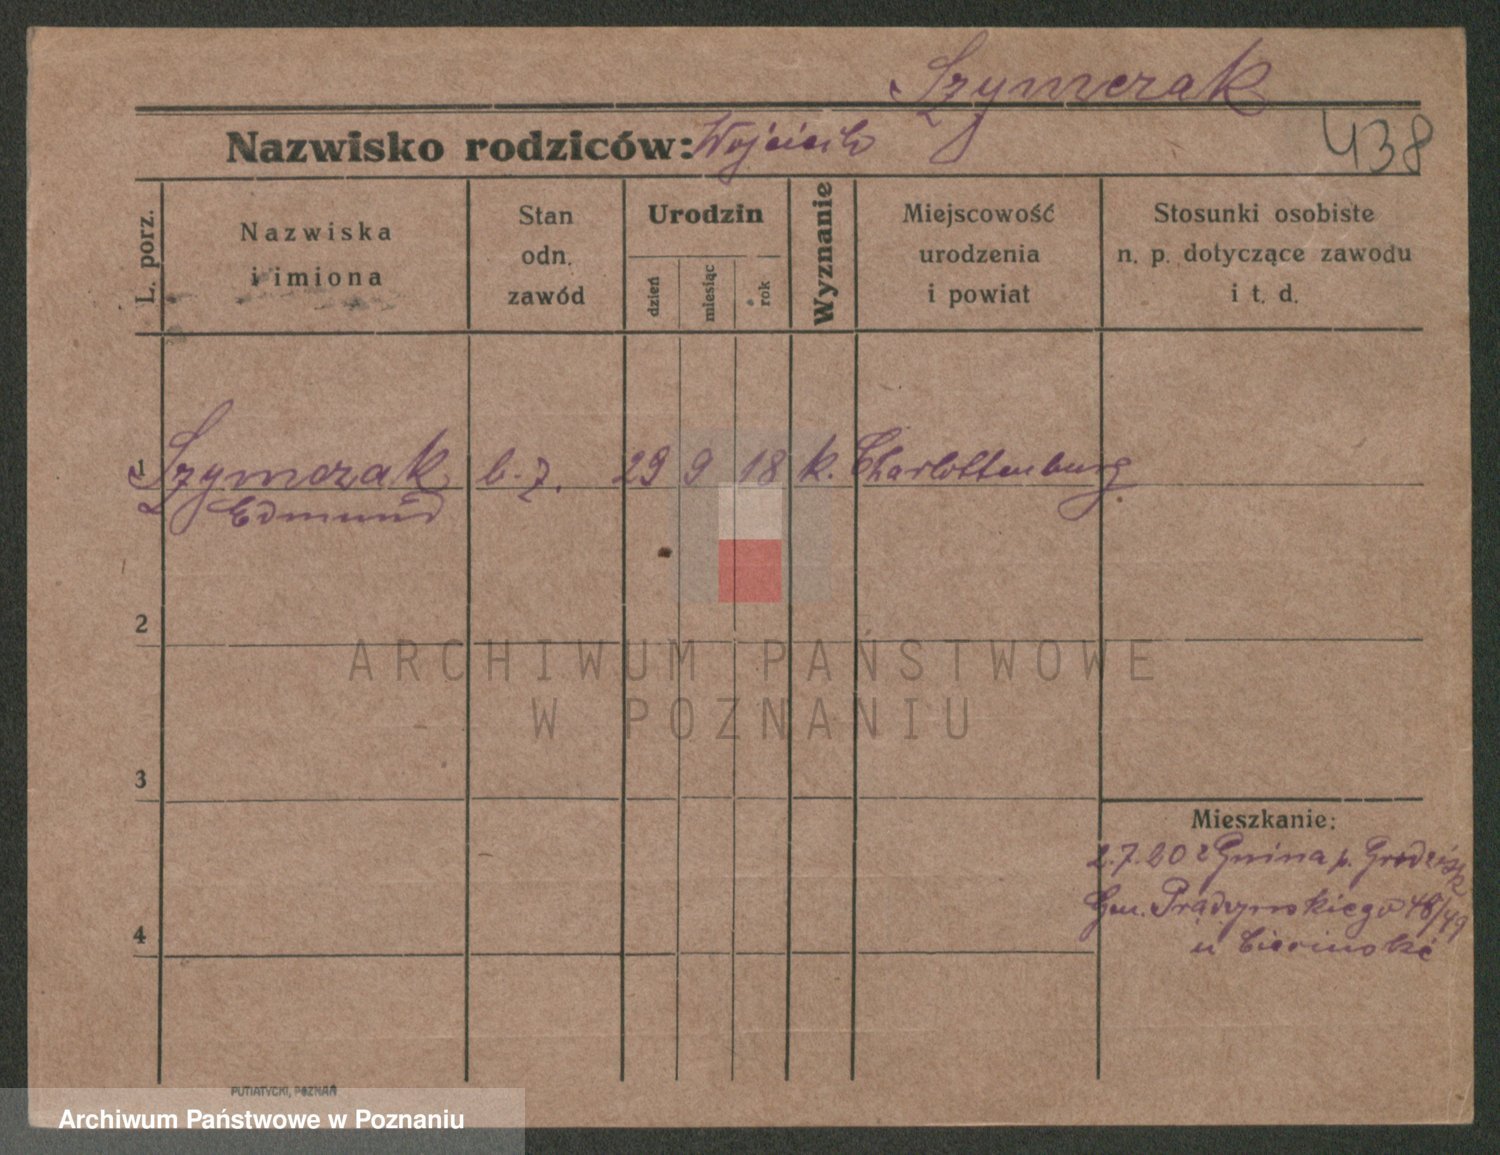 Szymczak
Nazwisko rodziców: Wojciech
438
L. porz.
Nazwiska
i imiona
Stan
odn.
zawód
Urodzin
dzień
miesiąc
rok
Wyznanie
Miejscowość
urodzenia
i powiat
Stosunki osobiste
n. p. dotyczące zawodu
i t. d.
1 Szymczak b. z. 29 9 18 k. Charlottenburg.
Edmund
2
ARCHIWUM PAŃSTWOWE
W POZNANIU
3
Mieszkanie:
2.7.20 z Gmina p. Grodzisk
Gen. Prądzyńskiego 48/49
4
u
PUTIATYCKI, POZNAŃ
Archiwum Państwowe w Poznaniu